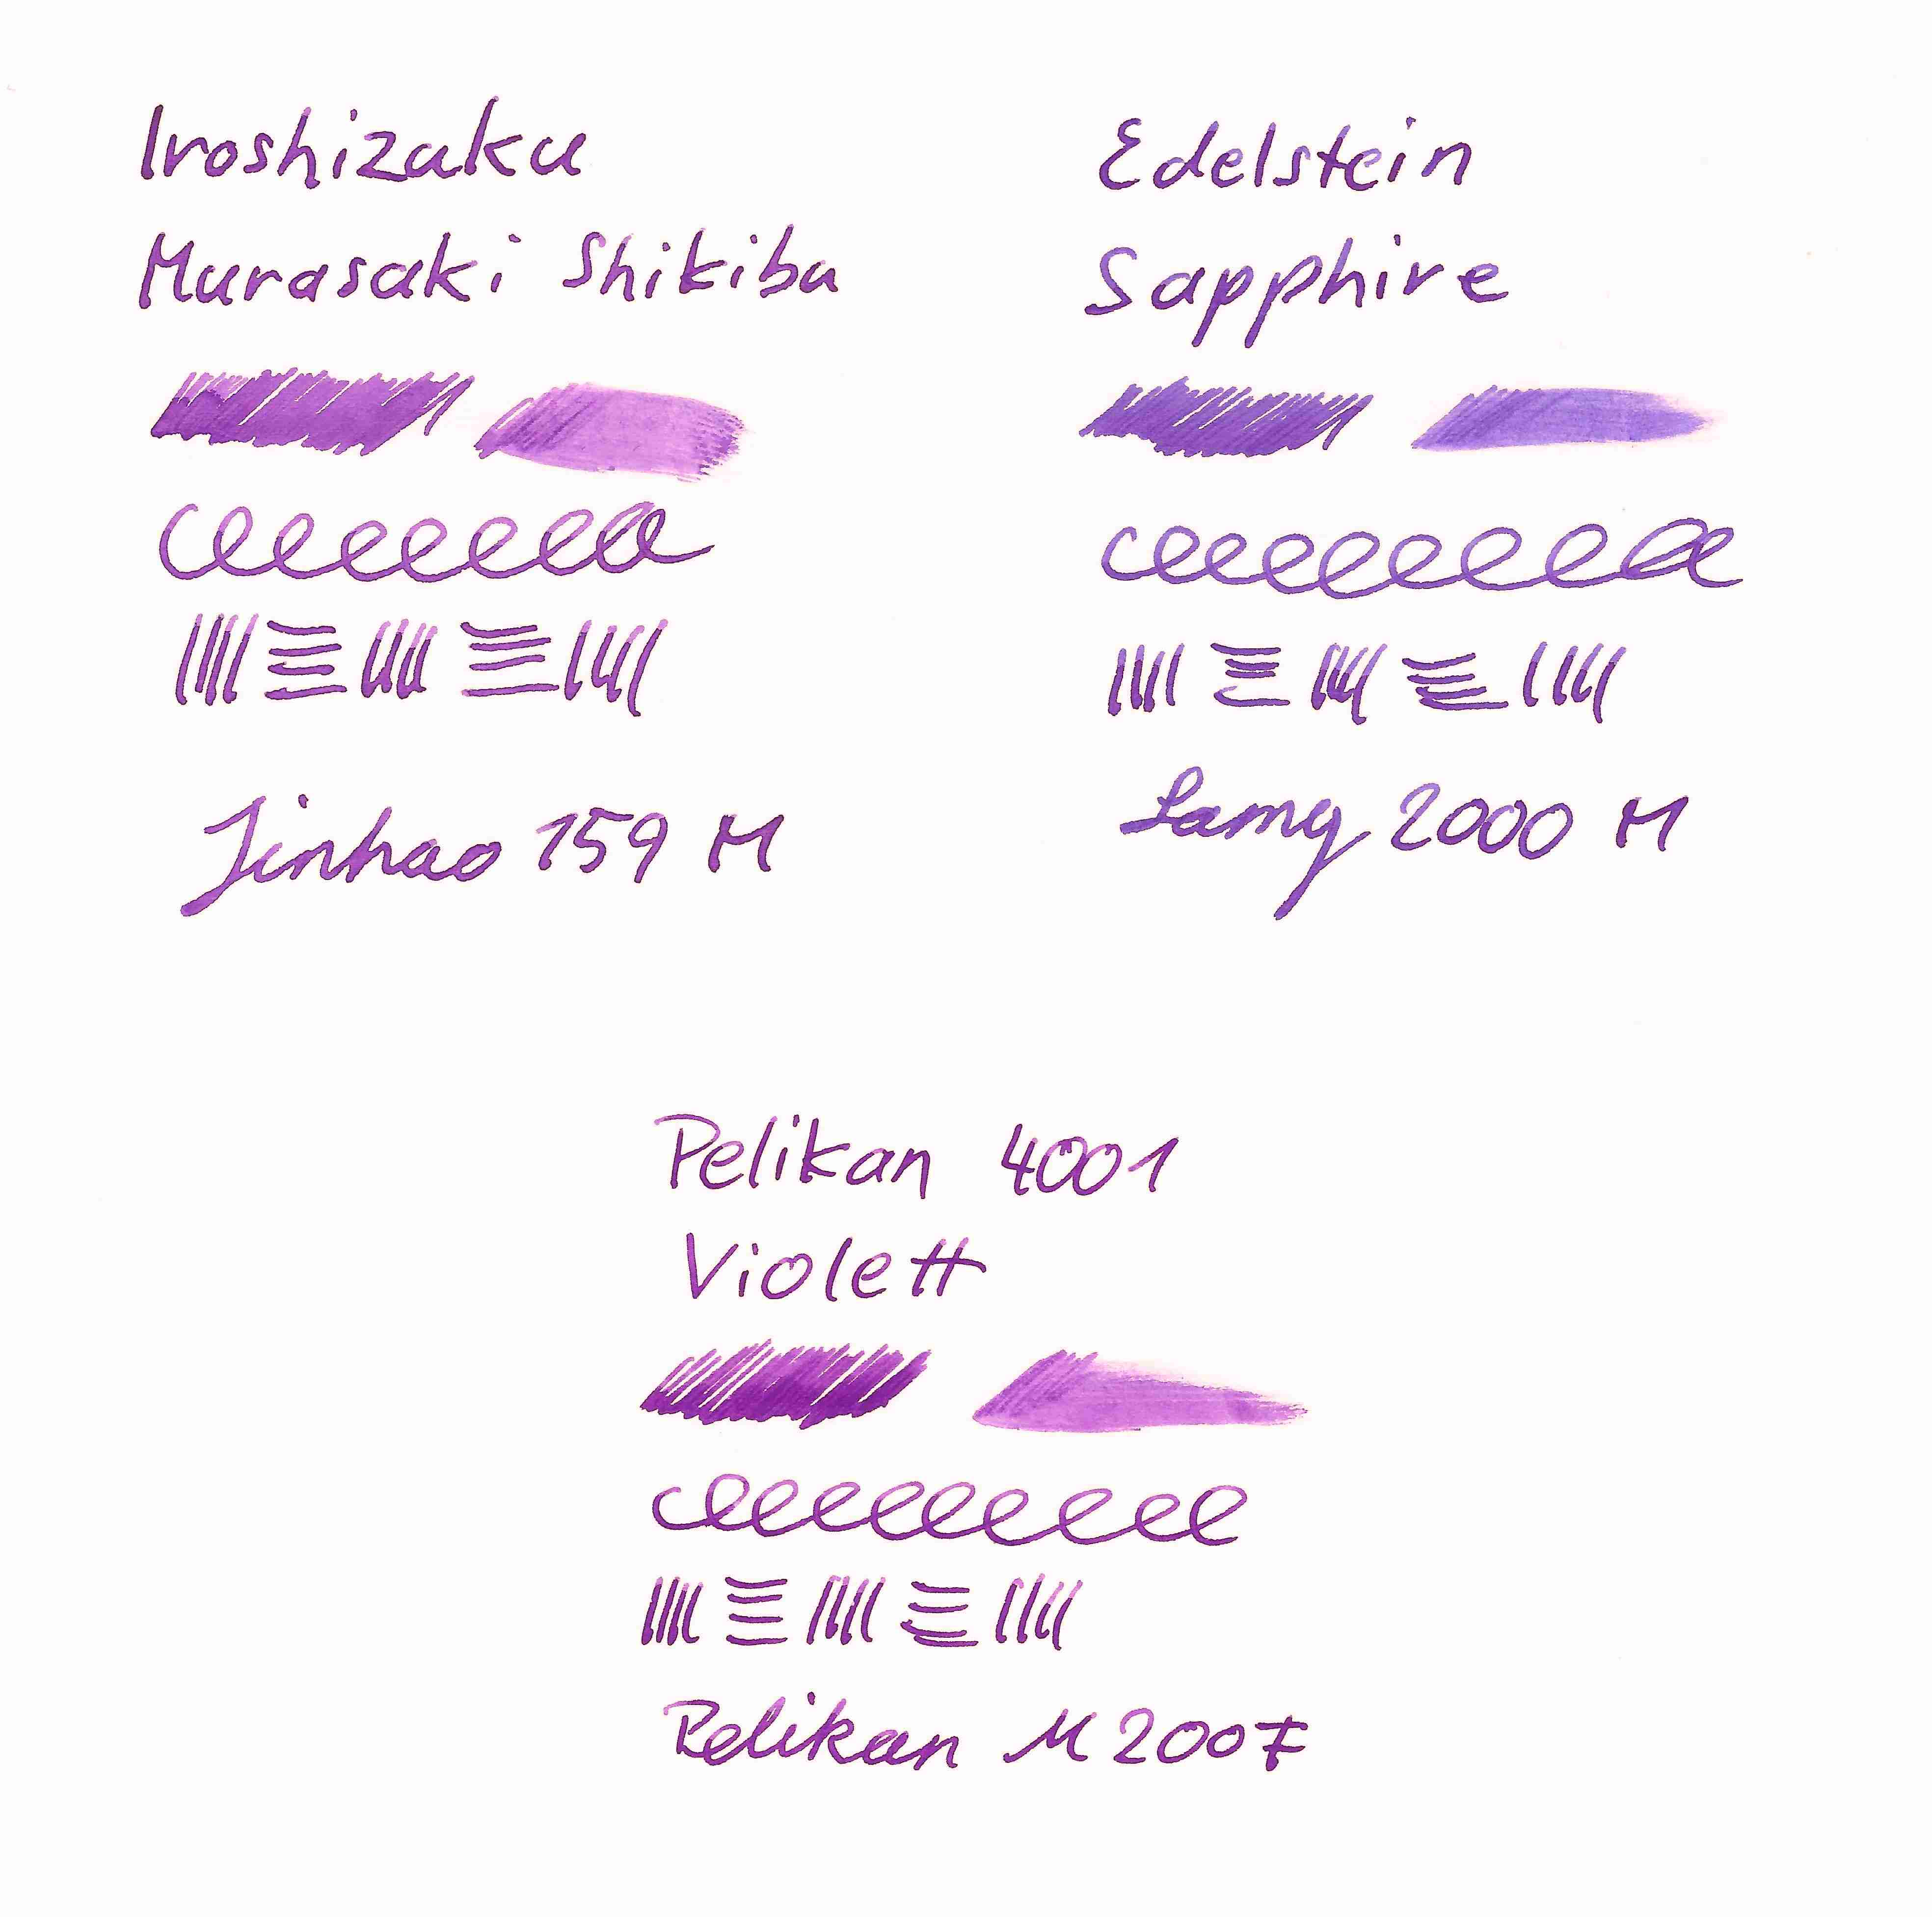 Iroshizuku
Murasaki Shikibu
Jinhao 159 M
Edelstein
Sapphire
Lamy 2000 M
Pelikan 4001
Violett
Pelikan M200 F